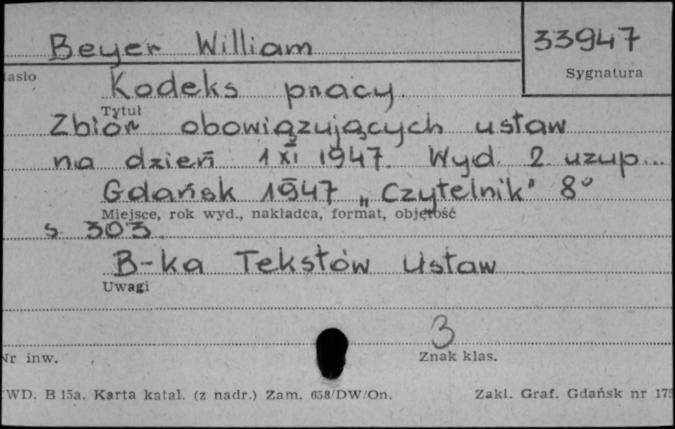 Beyer William
33947
asło
Sygnatura
Kodeks pracy.
Tytuł
Zbiór obowiązujących ustaw
na dzień 1 XI 1947. Wyd. 2. uzup...
Gdańsk 1947 „Czytelnik" 8°
Miejsce, rok wyd., nakładca, format, objętość
s. 303.
B-ka Tekstów Ustaw
Uwagi
3
Nr inw.
Znak klas.
WD. B 15a. Karta katal. (z nadr.) Zam. 658/DW/On.
Zakl. Graf. Gdańsk nr 175